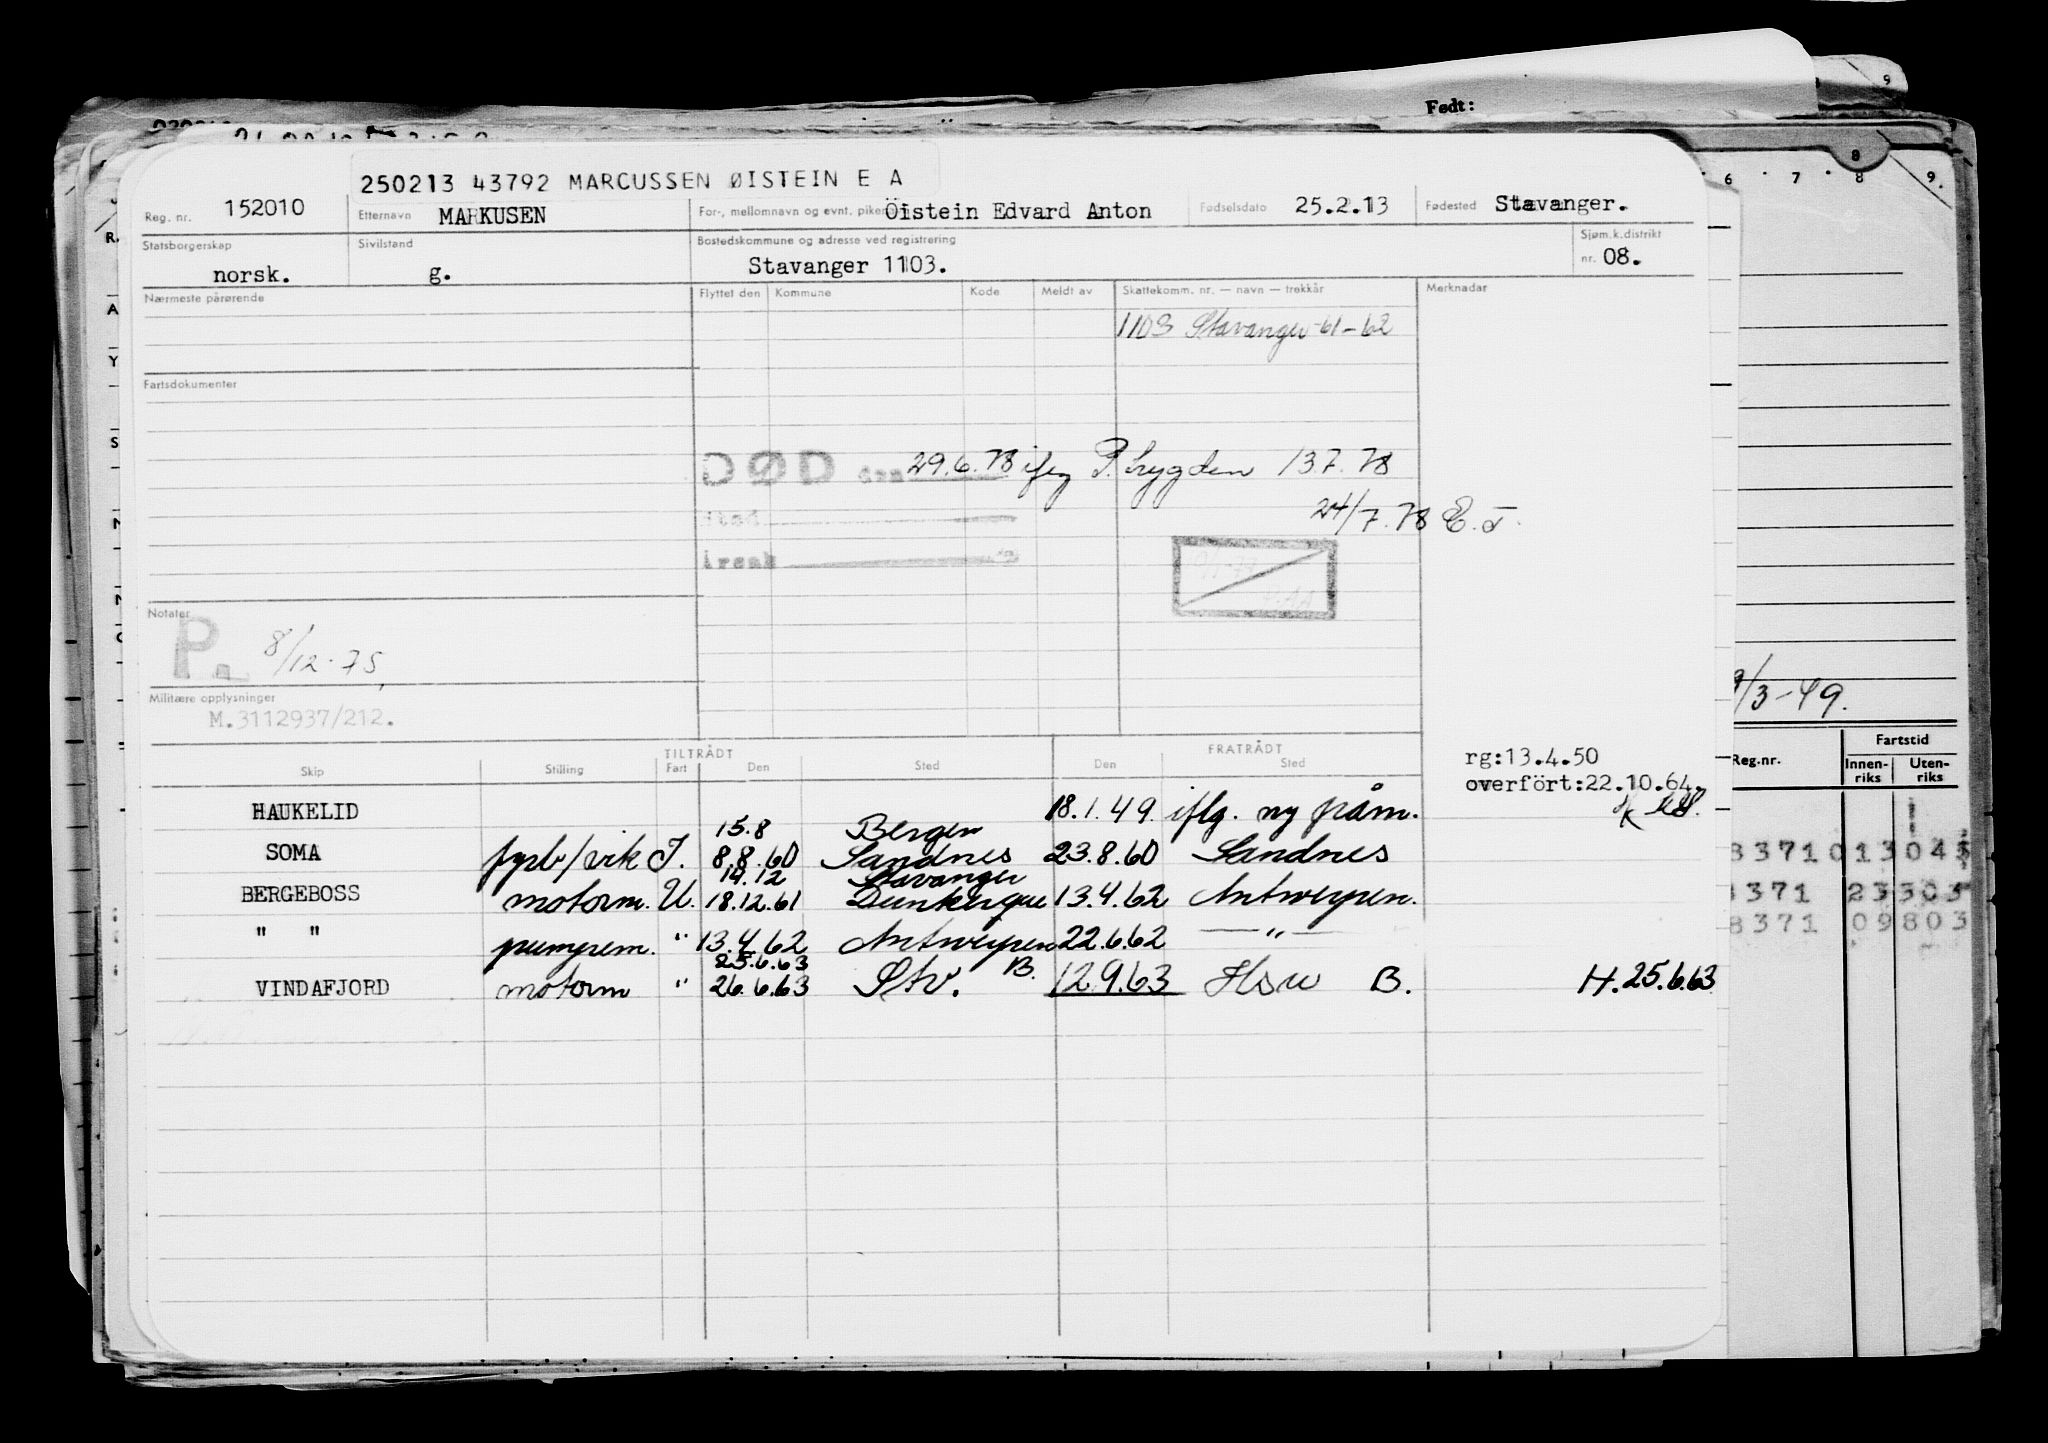 Født: 9
250213 43792 MARCUSSEN ØISTEIN E A
6 7 8 9
Reg. nr. 152010 Etternavn MARKUSEN For-, mellomnavn og evnt. pikenavn Öistein Edvard Anton Fødselsdato 25.2.13 Fødested Stavanger.
Statsborgerskap norsk. Sivilstand g. Bostedskommune og adresse ved registrering Stavanger 1103. Sjøm.k.distrikt nr. 08.
Nærmeste pårørende Flyttet den Kommune Kode Meldt av Skattekomm. nr. — navn — trekkår Merknader
1103 Stavanger 61-62
Fartsdokumenter
DØD den 29.6.78 iflg P. trygden 13.7.78
Sted
24/7.78 E.T.
Årsak
Notater
P. 8/12-75,
Militære opplysninger
M.3112937/212.
/3-49.
TILTRÅDT FRATRÅDT
Skip Stilling Fart Den Sted Den Sted
rg:13.4.50
overfört:22.10.64.
Reg.nr. Fartstid
Innen-riks Uten-riks
HAUKELID 18.1.49 iflg. ny påm.
15.8 Bergen
SOMA fyrb/vik I. 8.8.60 Sandnes 23.8.60 Sandnes
14.12 Stavanger
BERGEBOSS motorm. U. 18.12.61 Dunkerque 13.4.62 Antwerpen.
" " pumpem. " 13.4.62 Antwerpen 22.6.62 — " —
25.6.63 B.
VINDAFJORD motorm " 26.6.63 Stv. 12.9.63 Hsw B. H. 25.6.63